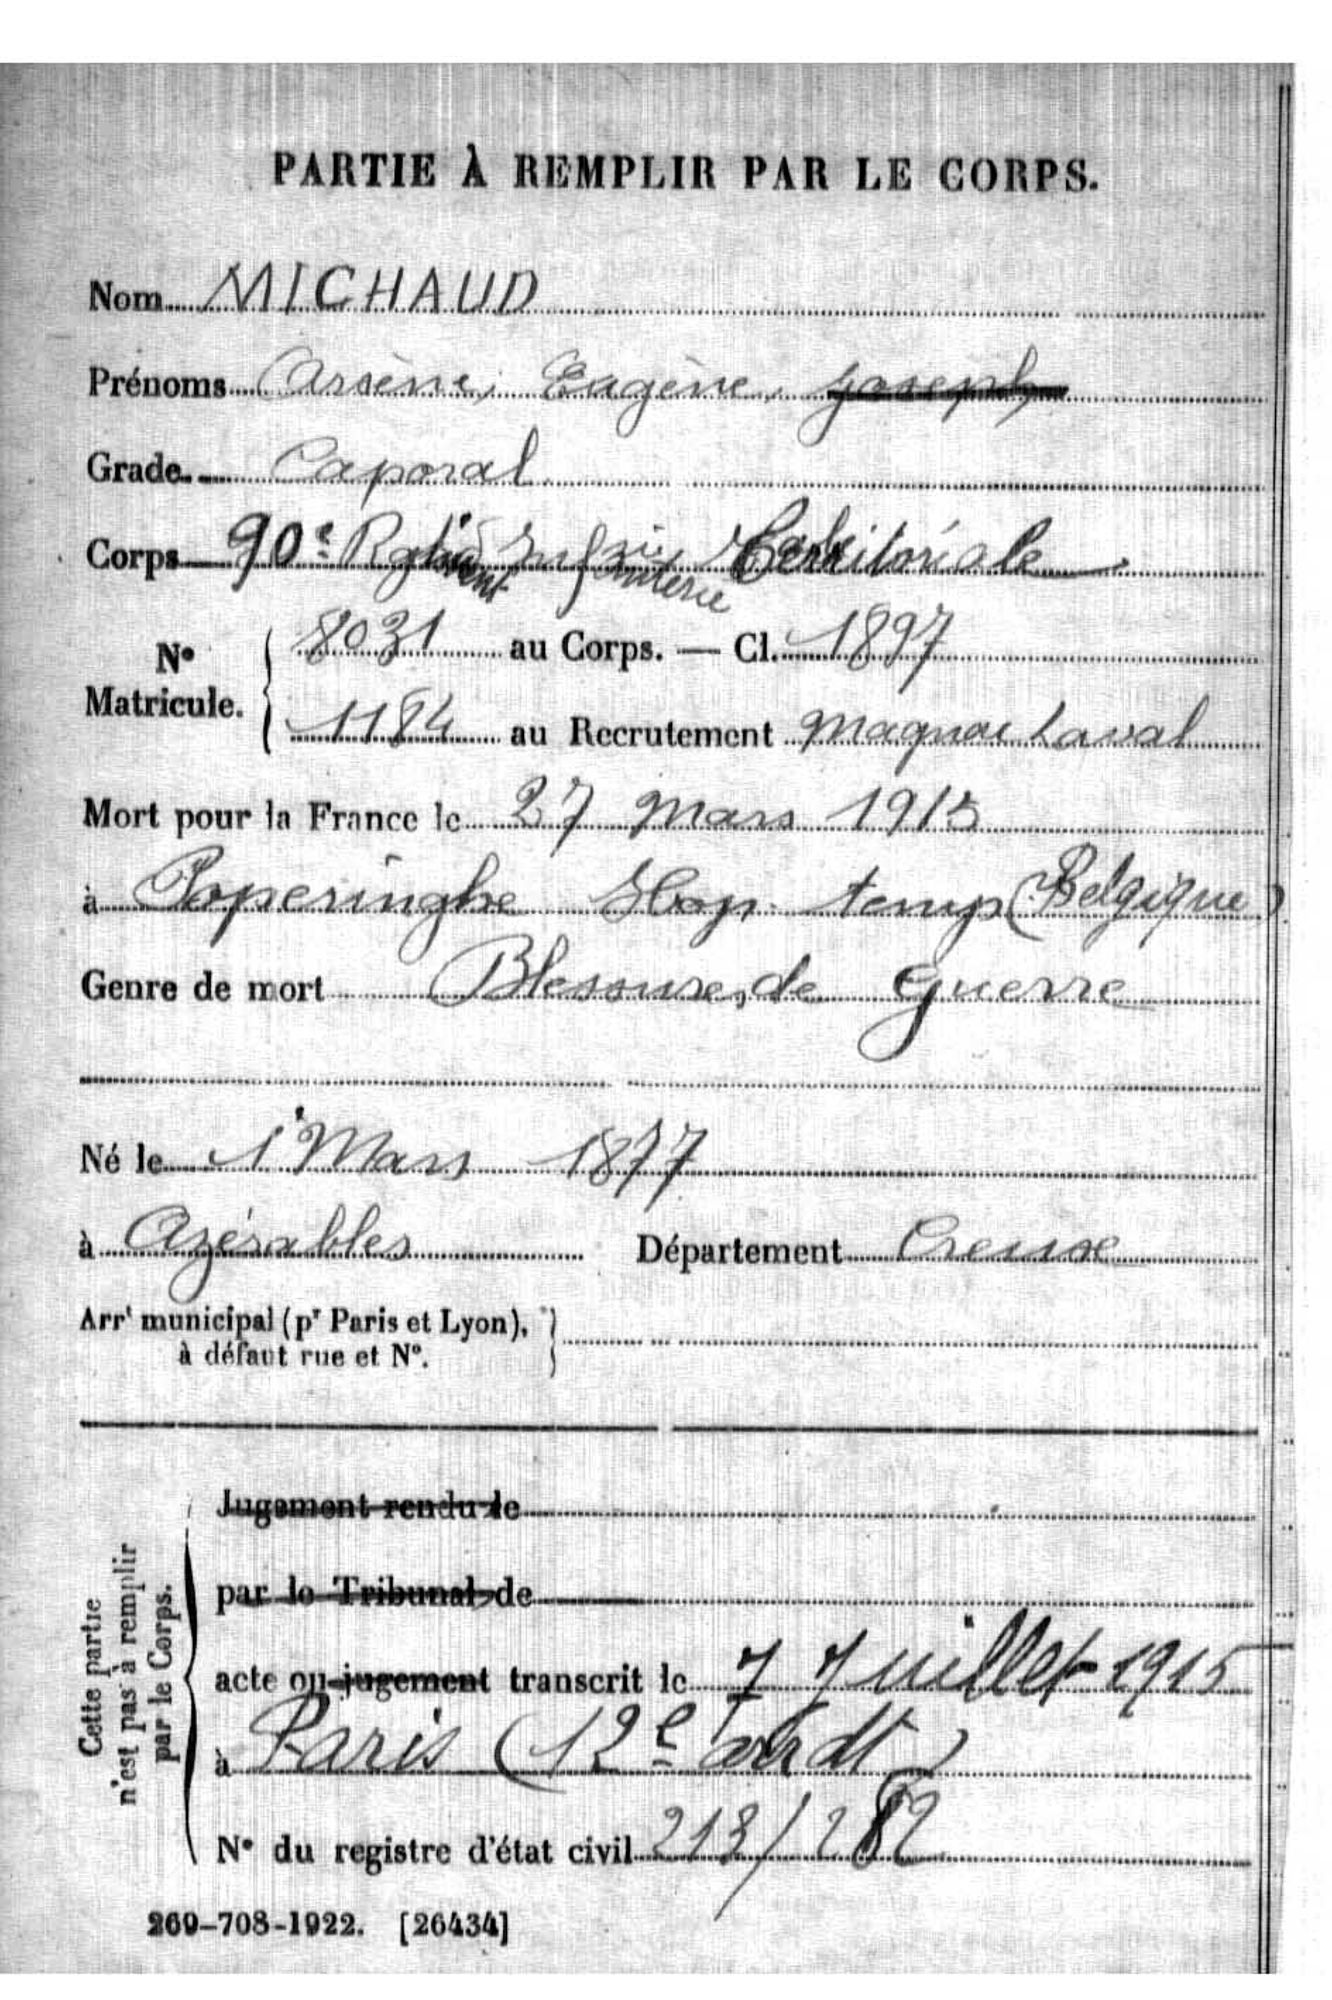 PARTIE À REMPLIR PAR LE CORPS.
Nom MICHAUD
Prénoms Arsène, Eugène, Joseph
Grade Caporal
Corps 90e Infanterie Territoriale
N° Matricule. 8031 au Corps. — Cl. 1897
1184 au Recrutement Magnac Laval
Mort pour la France le 27 Mars 1915
à Poperinghe Hop. temp (Belgique)
Genre de mort Blessures de Guerre
Né le 1 Mars 1877
à Azérables Département Creuse
Arrt municipal (pr Paris et Lyon),
à défaut rue et N°.
Cette partie
n'est pas à remplir
par le Corps.
Jugement rendu le
par le Tribunal de
acte ou jugement transcrit le 7 Juillet 1915
à Paris (12e ardt)
N° du registre d'état civil 213/282
269-708-1922. [26434]